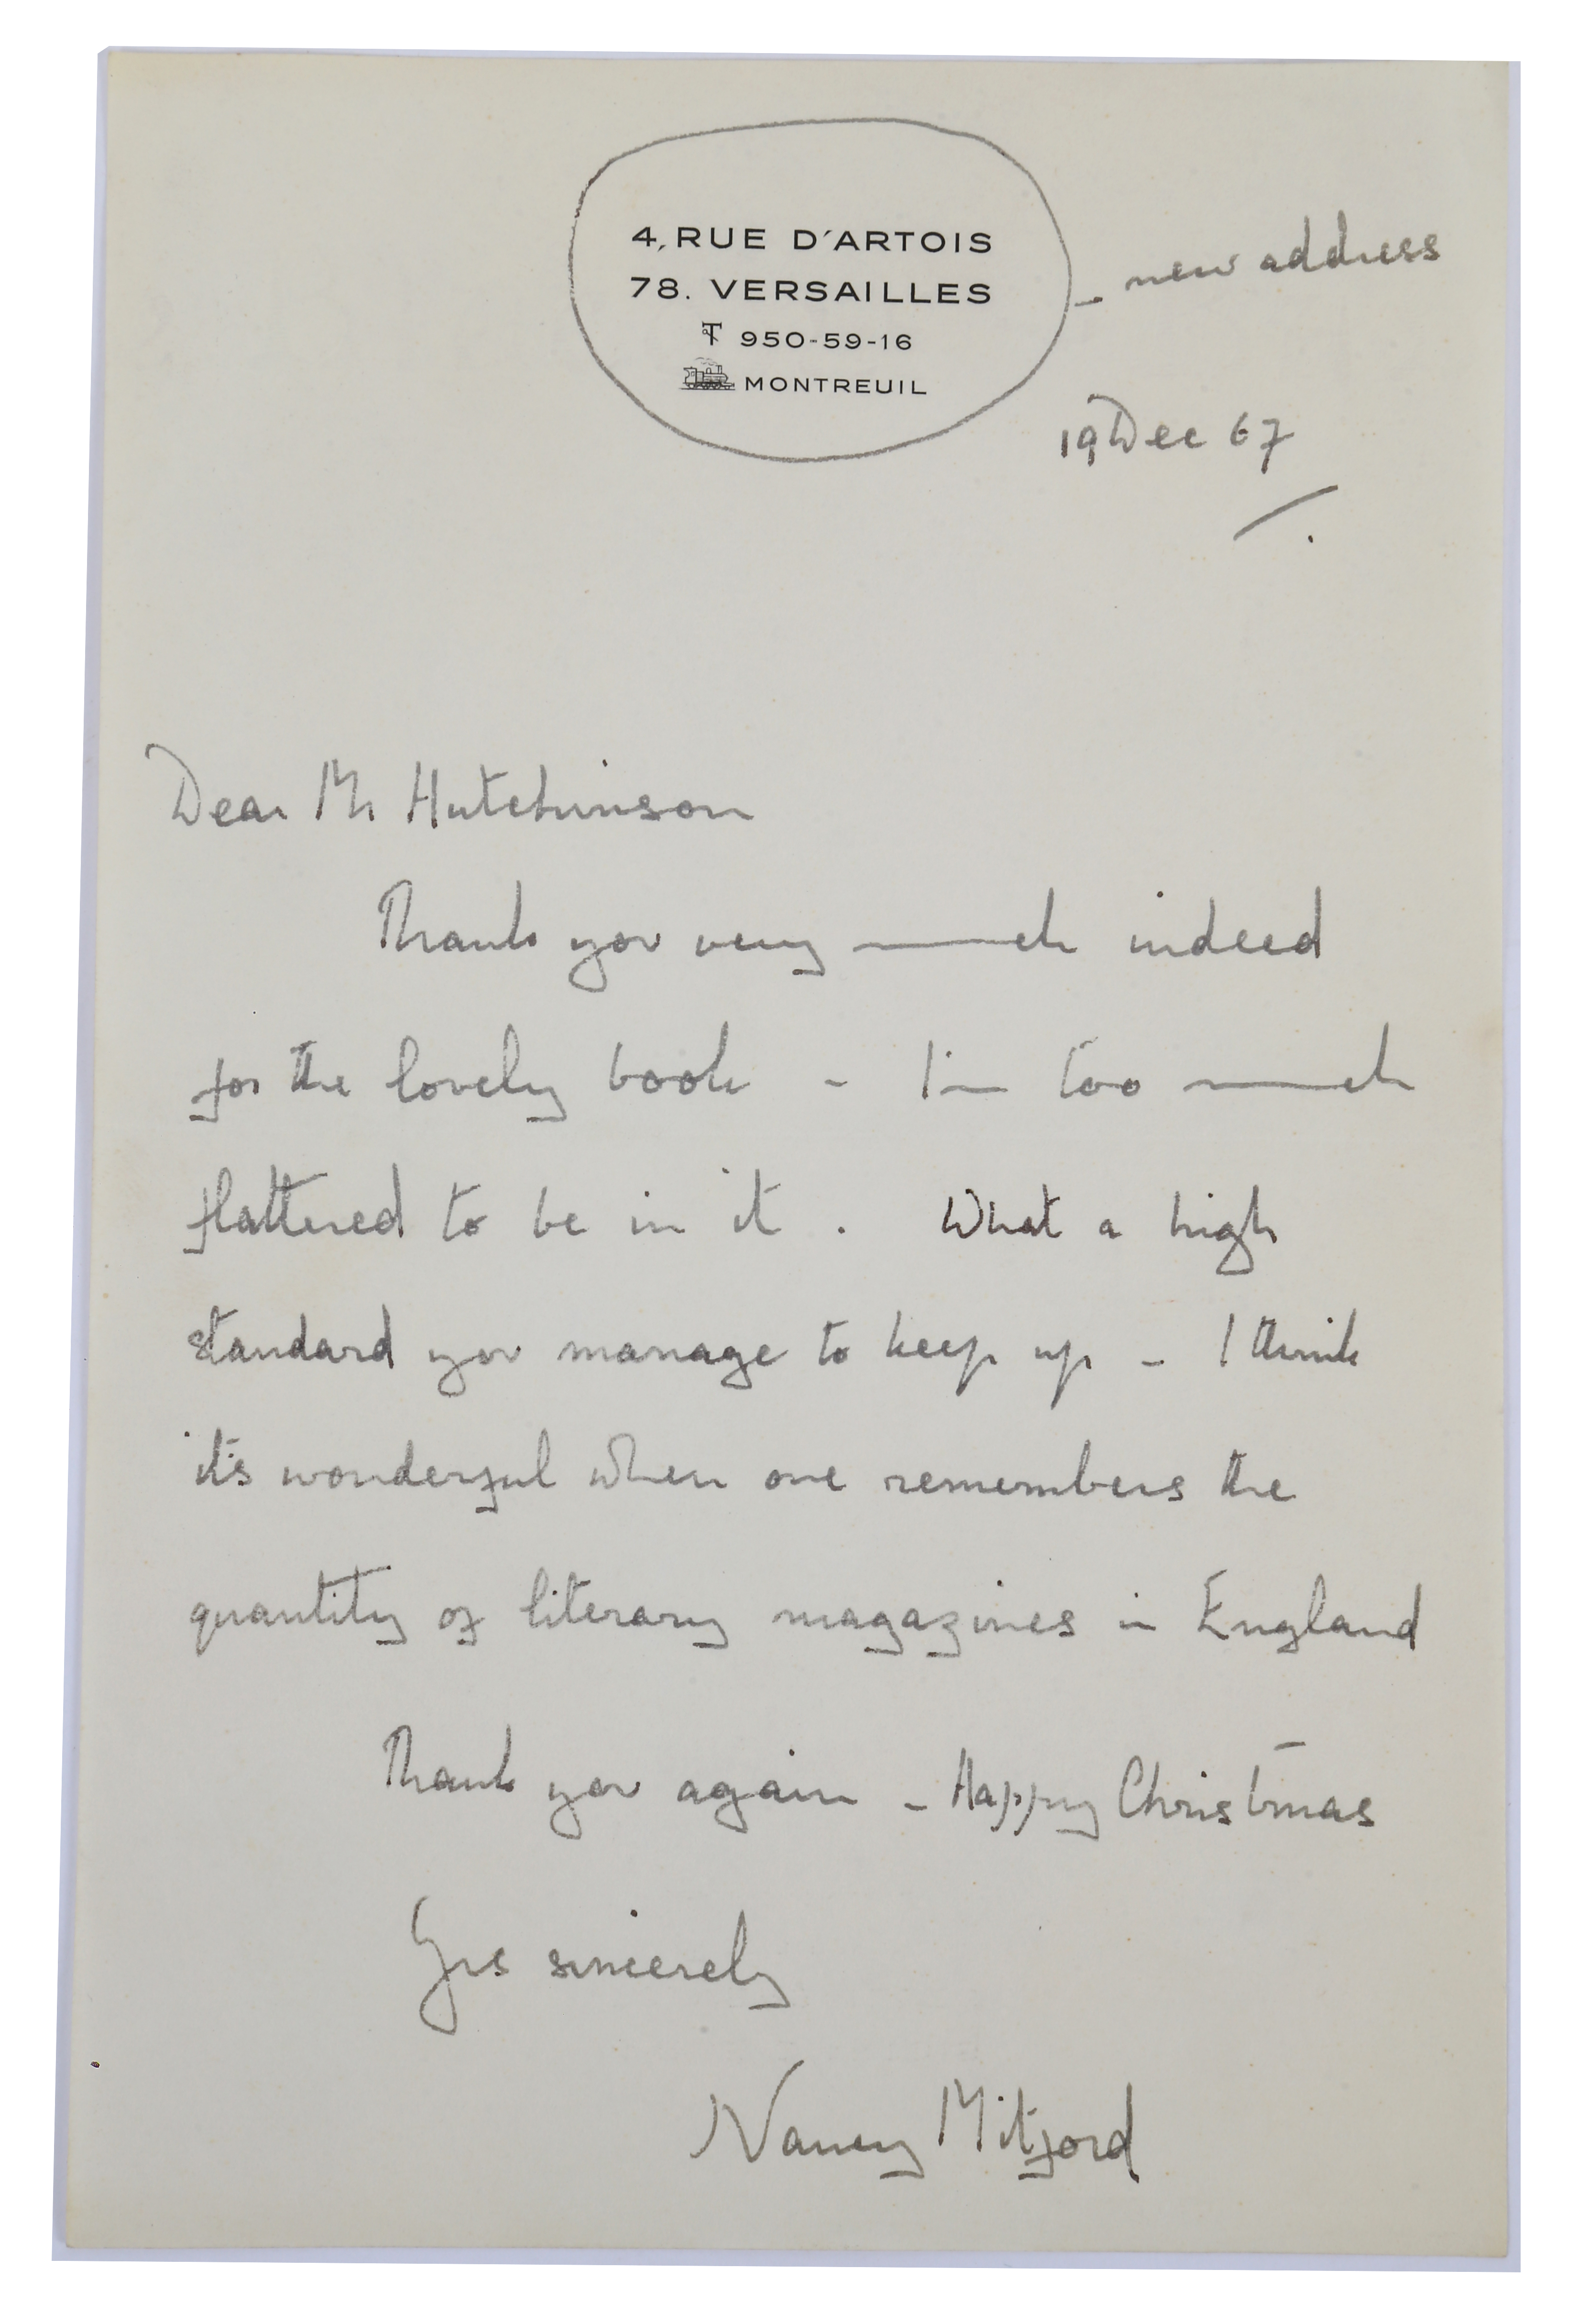 4, RUE D'ARTOIS
78. VERSAILLES
950-59-16
MONTREUIL
- new address
19 Dec 67
Dear Mr Hutchinson
Thank you very much indeed
for the lovely book - I'm too much
flattered to be in it. What a high
standard you manage to keep up - I think
it's wonderful when one remembers the
quantity of literary magazines in England
Thank you again - Happy Christmas
Yrs sincerely
Nancy Mitford